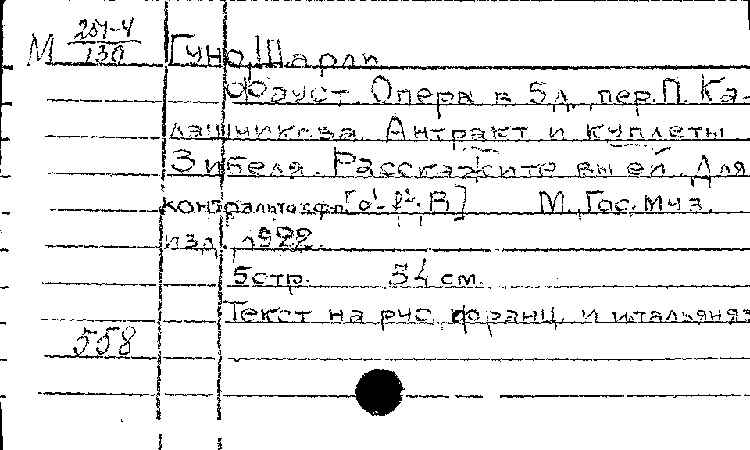 М 251-4/130 Гуно, Шарль
Фауст. Опера в 5 д., пер. П. Ка-
лашникова. Антракт и куплеты
Зибеля. Расскажите вы ей. Для
контральто с ф.п. М., Гос. муз.
изд. 1922.
5 стр. 34 см.
Текст на рус., франц. и итальян яз
558